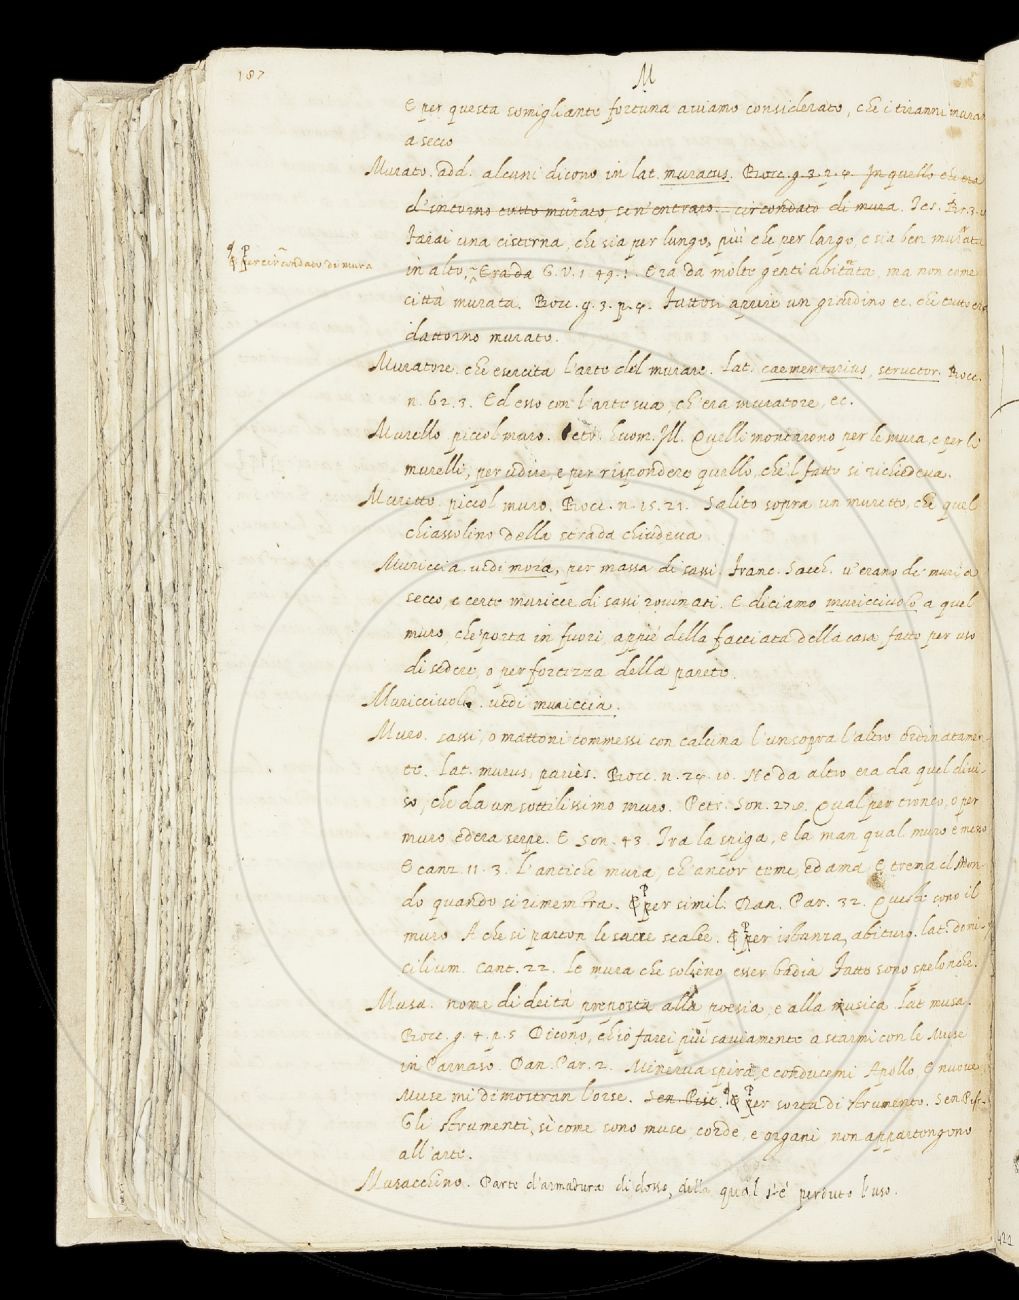 187
M
E per questa somigliante fortuna aviamo considerato, che i tiranni murano
a secco
Murato. add. alcuni dicono in lat. muratus. Bocc. g. 3. 2. 4. In quello che era
d'intorno tutto murato se n'entraro. circondato di mura. Tes. Br. 3.
Farai una cisterna, che sia per lungo, più che per largo, e sia ben murata
¶ per circondato di mura
in alto, Era da G. V. 1. 49. 1. Era da molte genti abitata, ma non come
città murata. Bocc. g. 3. p. 4. Fattosi aprire un giardino ec. che tutto era
dattorno murato.
Muratore. che esercita l'arte del murare. Lat. caementarius, structor. Bocc.
n. 62. 3. Ed esso con l'arte sua, ch'era muratore, ec.
Murello. piccol muro. Petr. huom. Ill. Quelli montarono per le mura, e per li
murelli, per udire, e per rispondere quello, che'l fatto si richiedeva.
Muretto. piccol muro. Bocc. n. 15. 21. Salito sopra un muretto, che quel
chiassolino della strada chiudeva
Muriccia. vedi mora, per massa di sassi. Franc. Sacch. v'erano de' muri a
secco, e certe muricce di sassi rovinati. E diciamo muricciuolo a quel
muro, che sporta in fuori, appiè della facciata della casa, fatto per uso
di sedere, o per fortezza della parete.
Muricciuolo. vedi muriccia.
Muro. sassi, o mattoni commessi con calcina l'un sopra l'altro ordinatamen-
te. Lat. murus, paries. Bocc. n. 24. 10. Ne da altro era da quel divi-
so, che da un sottilissimo muro. Petr. Son. 278. Qual per tronco, o per
muro edera serpe. E Son. 43. Tra la spiga, e la man qual muro è messo
E canz. 11. 3. L'antiche mura, ch'ancor teme, ed ama, E trema el Mon-
do quando si rimembra. ¶ Per simil. Dan. Par. 32. Questi sono il
muro A che si parton le sacre scalee. ¶ Per istanza, abituro. lat. domi-
cilium. Cant. 22. Le mura che solieno esser badia Fatte sono spelonche.
Musa. nome di deità preposta alla poesia, e alla musica Lat musa.
Bocc. g. 4. p. 5 Dicono, ch'io farei più saviamente a starmi con le Muse
in Parnaso. Dan. Par. 2. Minerva spira, e conducemi Apollo E nuove
Muse mi dimostran l'orse. Sen. Pist. ¶ Per sorta di strumento. Sen. Pist.
Gli strumenti, sì come sono muse, corde, e organi non appartengono
all'arte.
Musacchino. Parte d'armadura di dosso, della qual s'è perduto l'uso.
422